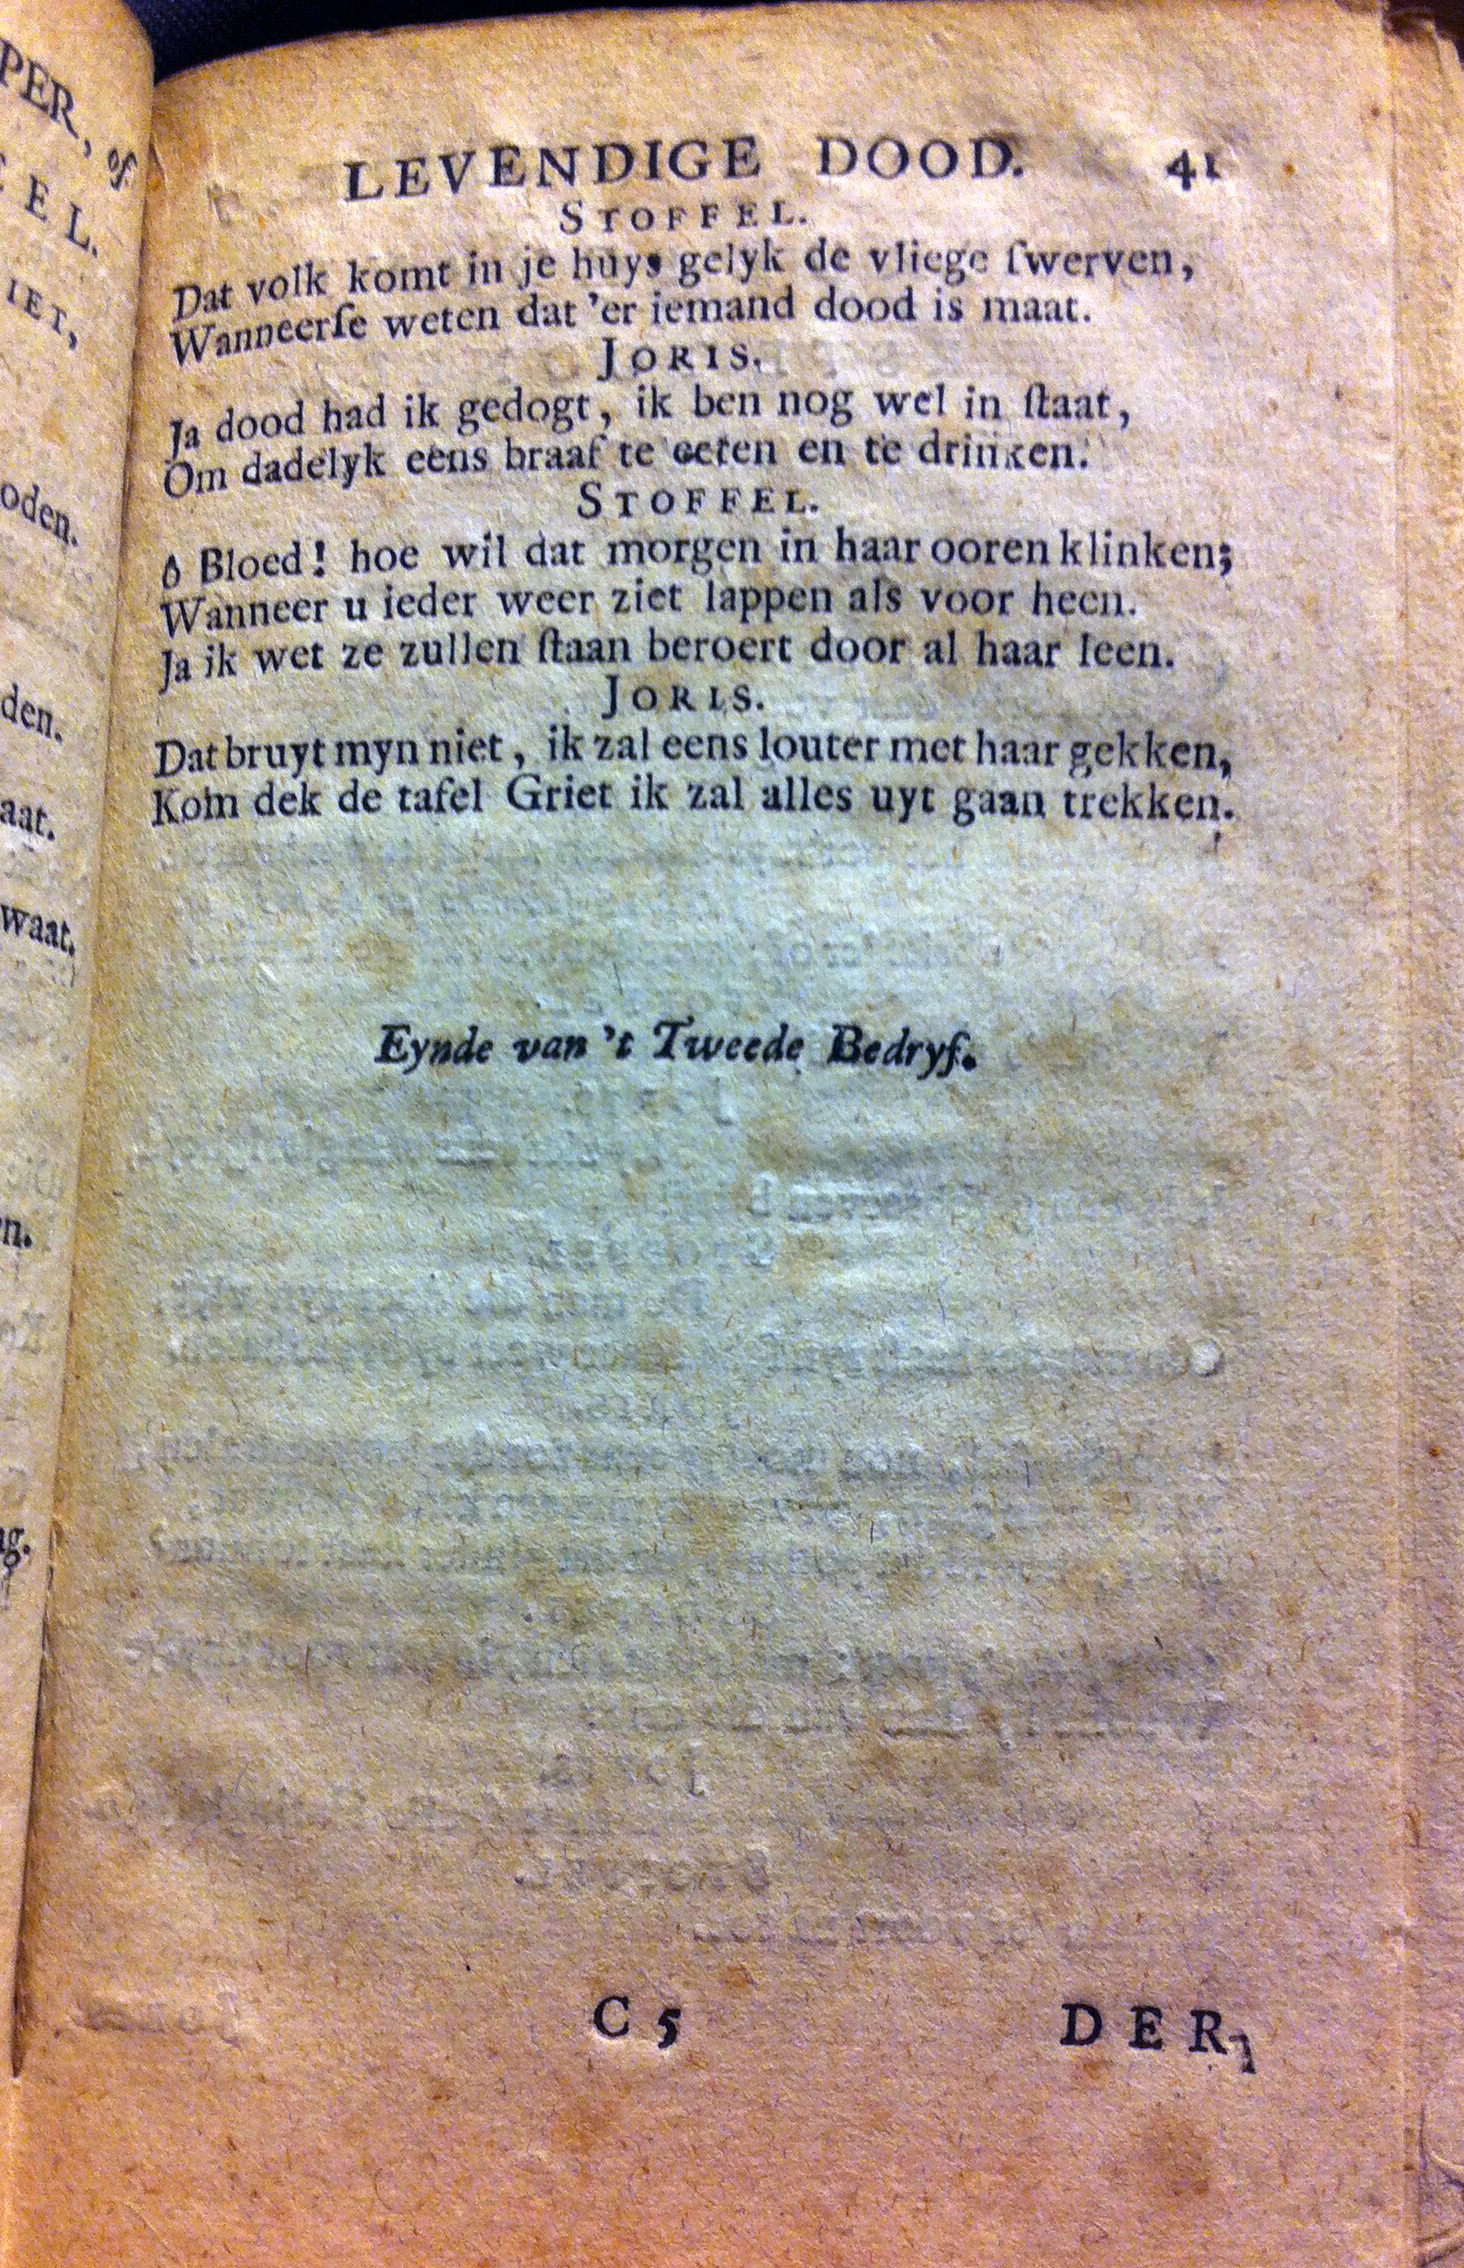 PER, of
E L.
IET,
oden.
den.
aat.
waat.
en.
ng.
LEVENDIGE DOOD. 41
STOFFEL.
Dat volk komt in je huys gelyk de vliege ſwerven,
Wanneerſe weten dat 'er iemand dood is maat.
JORIS.
Ja dood had ik gedogt, ik ben nog wel in ſtaat,
Om dadelyk eens braaf te eeten en te drinken.
STOFFEL.
ô Bloed! hoe wil dat morgen in haar ooren klinken;
Wanneer u ieder weer ziet lappen als voor heen.
Ja ik wet ze zullen ſtaan beroert door al haar leen.
JORIS.
Dat bruyt myn niet, ik zal eens louter met haar gekken,
Kom dek de tafel Griet ik zal alles uyt gaan trekken.
Eynde van 't Tweede Bedryf.
C 5 DER